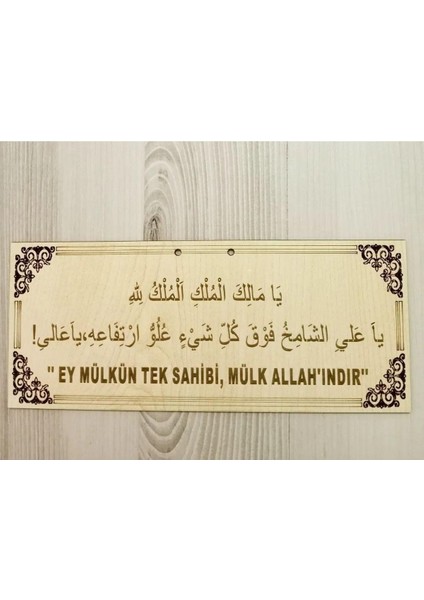 يَا مَالِكَ الْمُلْكِ اَلْمُلْكُ لِلّهِ
ياَ عَليِ الشَامِخُ فَوْقَ كُلِّ شَيْءٍ عُلُوُّ ارْتِفَاعِهِ،ياَعَاليِ!
" EY MÜLKÜN TEK SAHİBİ, MÜLK ALLAH'INDIR"